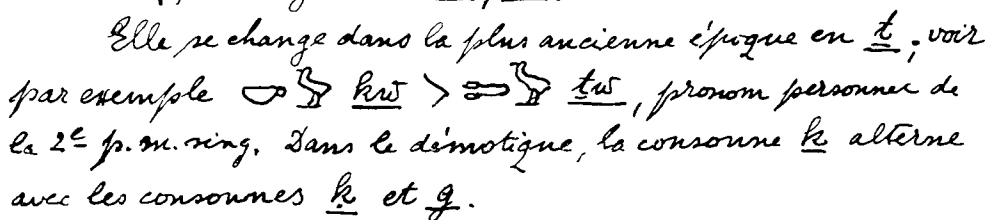 Elle se change dans la plus ancienne époque en ṯ ; voir
par exemple 𓎡𓅱 kw > 𓍿𓅱 ṯw, pronom personnel de
la 2e p. m. sing. Dans le démotique, la consonne k alterne
avec les consonnes ḳ et g.